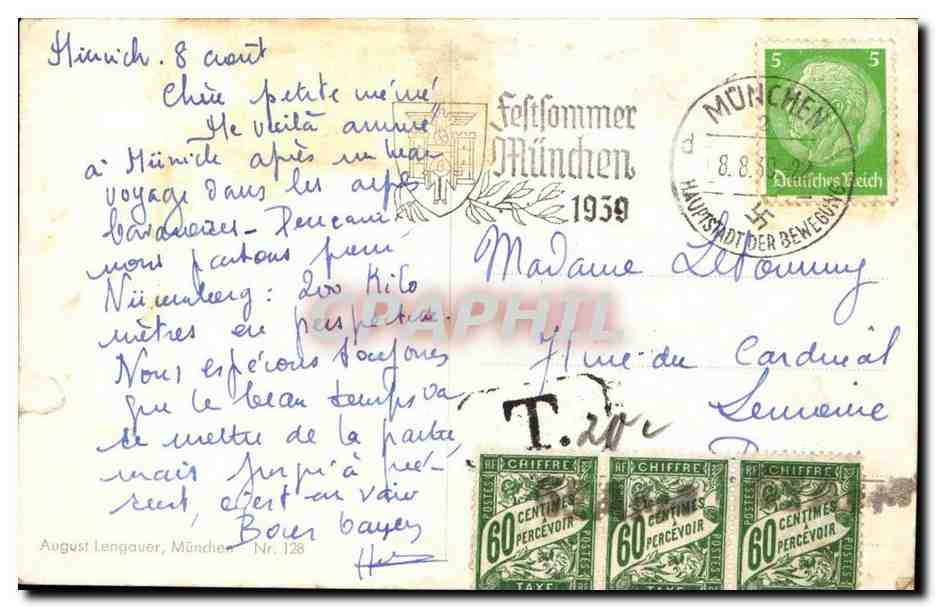 Münich. 8 août
Chère petite mémé
Me voilà arrivé
à Münich après un beau
voyage dans les alpes
bavaroises - Demain
nous partons pour
Nüremberg : 200 Kilo
mètres en perspective.
Nous espérons toujours
que le beau temps va
se mettre de la partie,
mais jusqu'à pré-
sent, c'est en vain
Bons baisers
August Lengauer, München Nr. 128
Festsommer
München
1939
MÜNCHEN
2
d
8.8.39
HAUPTSTADT DER BEWEGUNG
5 5
Deutsches Reich
Madame
rue du Cardinal
Lemoine
T. 20 c
RF CHIFFRE
POSTES
60 CENTIMES
À PERCEVOIR
TAXE
RF CHIFFRE
POSTES
60 CENTIMES
À PERCEVOIR
TAXE
RF CHIFFRE
POSTES
60 CENTIMES
À PERCEVOIR
TAXE
CPAPHIL